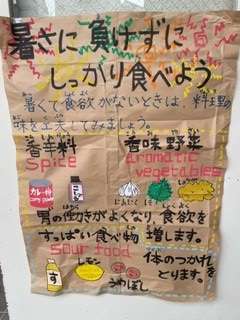 暑さに負けずに
しっかり食べよう
暑くて食欲がないときは、料理の
味を工夫してみましょう。
香辛料
spice
香味野菜
aromatic
vegetables
カレー粉
curry powder
こしょう
にんにく
ねぎ
しょうが
胃の働きがよくなり、食欲を
増します。
すっぱい食べ物
sour food
体のつかれを
とります。
す
レモン
うめぼし